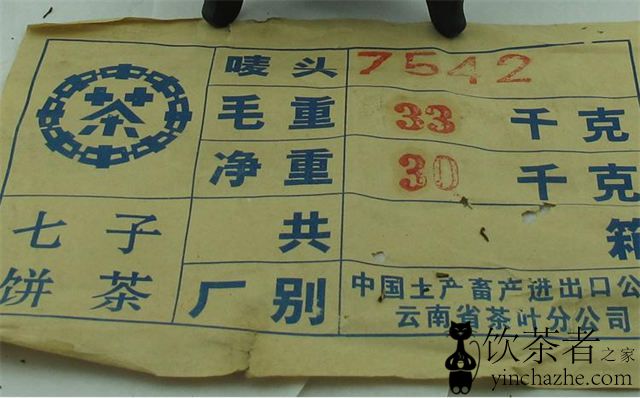 茶
唛头 7542
毛重 33 千克
净重 30 千克
七子
饼茶
共 箱
厂别
中国土产畜产进出口公
云南省茶叶分公司
饮茶者之家
yinchazhe.com